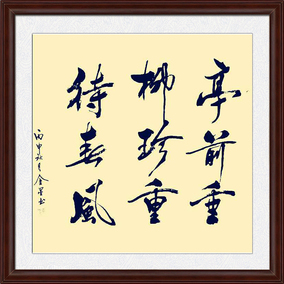 亭前垂
柳珍重
待春風
丙申秋月金書